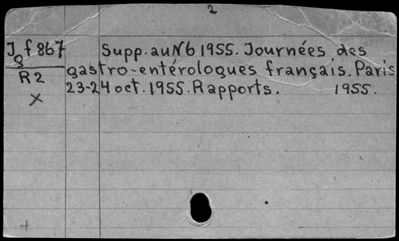 2
J g f 867 Supp. au N 6 1955. Journées des
R 2 gastro-entérologues français. Paris
x 23-24 oct. 1955. Rapports. 1955.